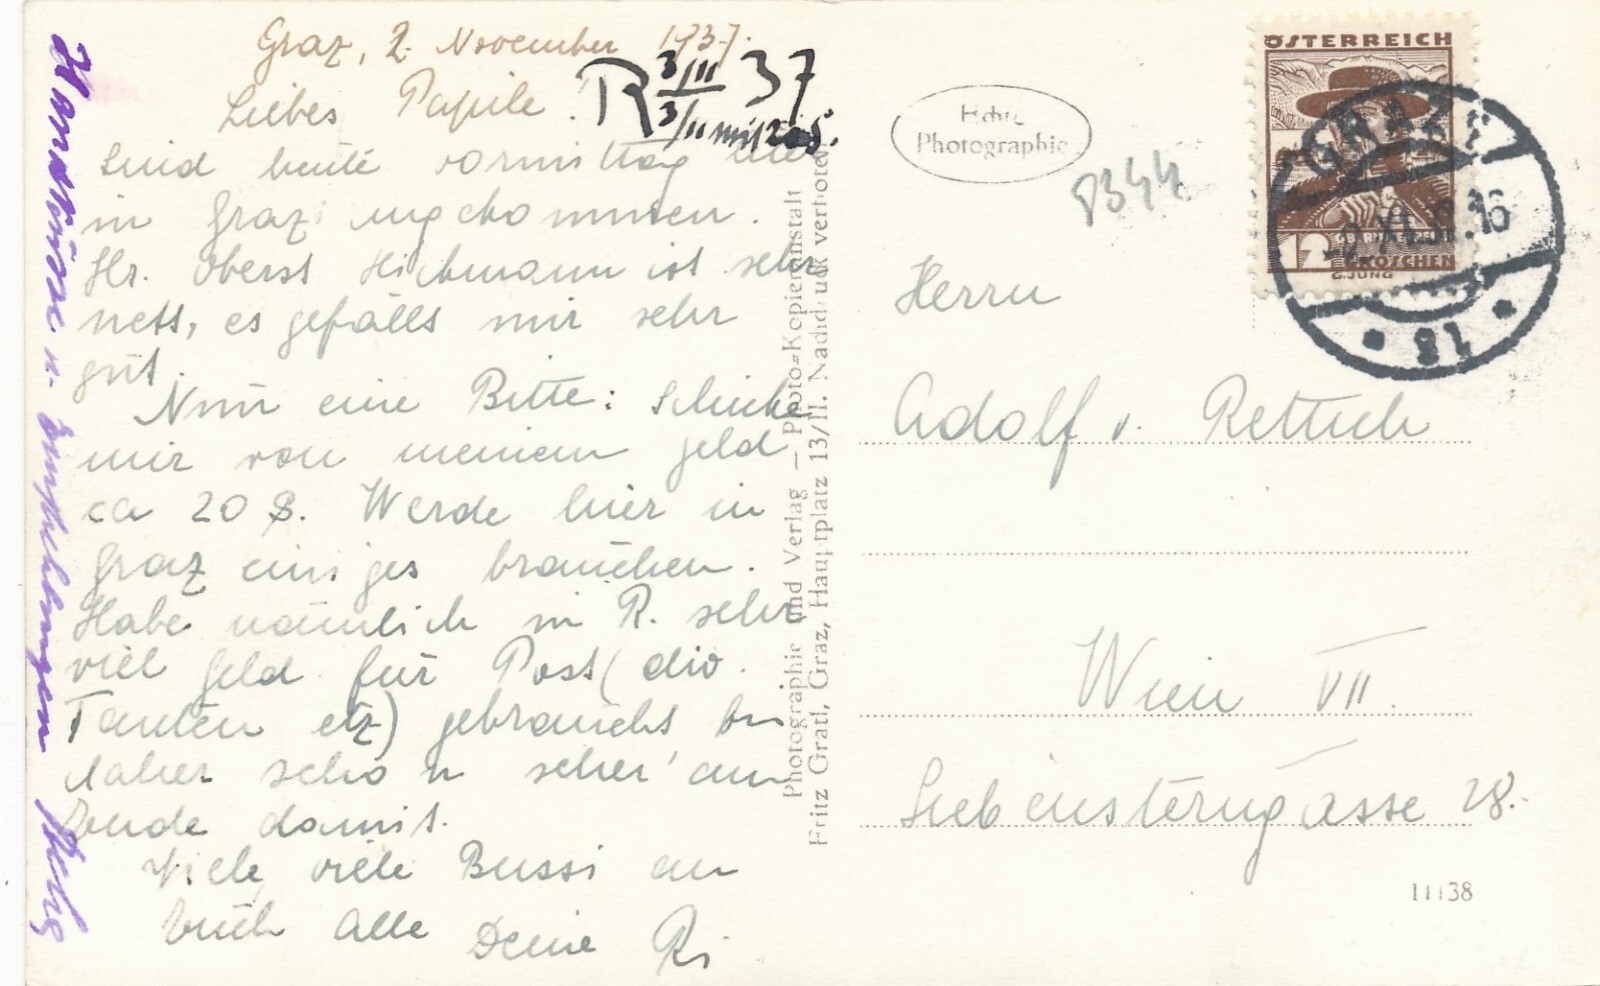 Graz, 2. November 1937.
Liebes Papile.
R 3/III 37
3/II mit 20 S.
Sind heute vormittag
in Graz angekommen.
Hr. Oberst Hickmann ist sehr
nett, es gefällt mir sehr
gut.
Nun eine Bitte: Schicke
mir von meinem Geld
ca 20 S. Werde hier in
Graz einiges brauchen.
Habe nämlich in R. sehr
viel Geld für Post (die
Tanten etz) gebraucht bin
daher schon sehr am
Ende damit.
Viele, viele Bussi an
Euch Alle Deine Ri
Handküsse u. Empfehlungen
Photographie und Verlag – Photo-Kopieranstalt
Fritz Gratl, Graz, Hauptplatz 13/II. Nachdruck verboten
Echte
Photographie
8344
ÖSTERREICH
12
GROSCHEN
G.JUNG
GRAZ 1
Herrn
Adolf v. Rettich
Wien VII.
Siebensterngasse 28.
11138